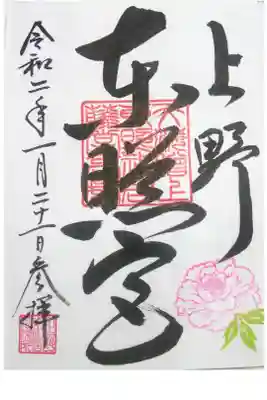 上野
東照宮
令和二年一月二十一日参拝